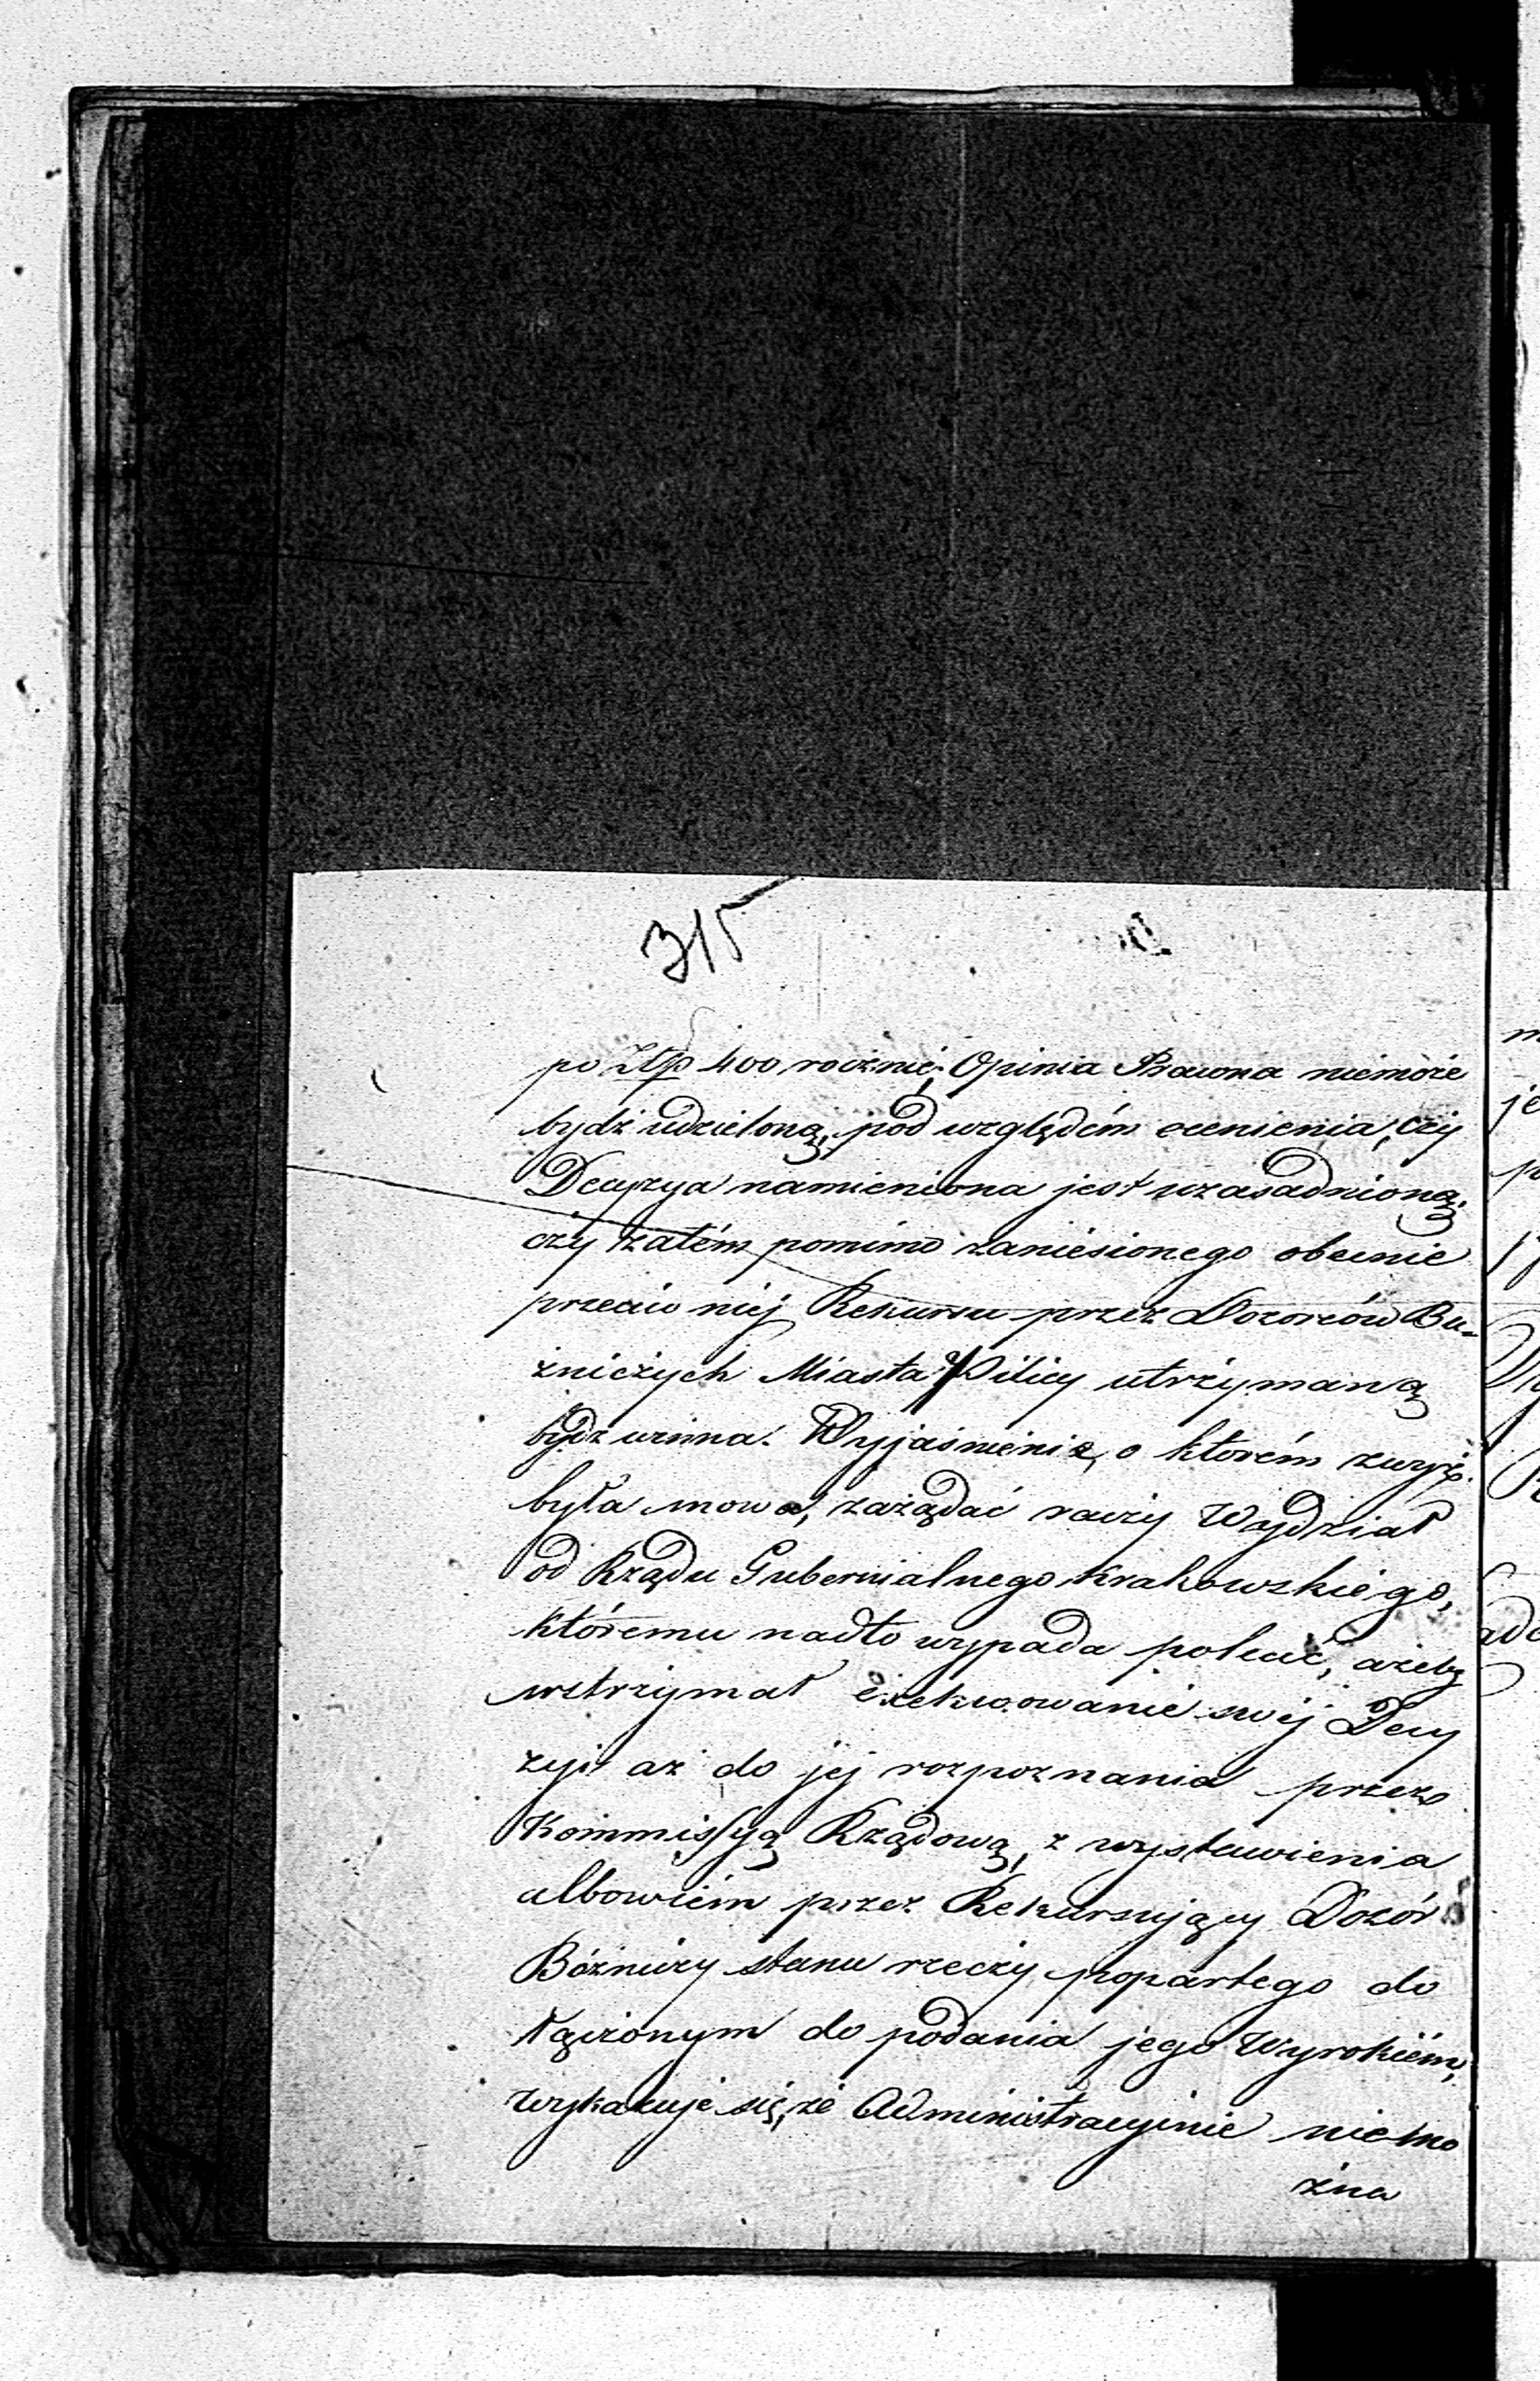 315
po Złp 400 rocznie; Opinia Prawna niemoże
bydź udzieloną, pod względem ocenienia, czy
Decyzya namieniona jest uzasadnioną,
czy zatém pomimo zaniesionego obecnie
przeciw niéj Rekursu przez Dozorców Bu-
żniczych Miasta Pilicy utrzymaną
bydź winna. Wyjaśnienie, o którém zwyż
była mowa, zażądać raczy Wydział
od Rządu Gubernialnego Krakowskiego,
któremu nadto wypada polecić, ażeby
wstrzymał exekwowanie swéj Decy
zyi aż do jéj rozpoznania przez
Kommissyą Rządową, z wystawienia
albowiem przez Rekursujący Dozór
Bóżniczy stanu rzeczy popartego do
łączonym do podania jego Wyrokiem,
wykazuje się, że Administracyjnie niemo
żna